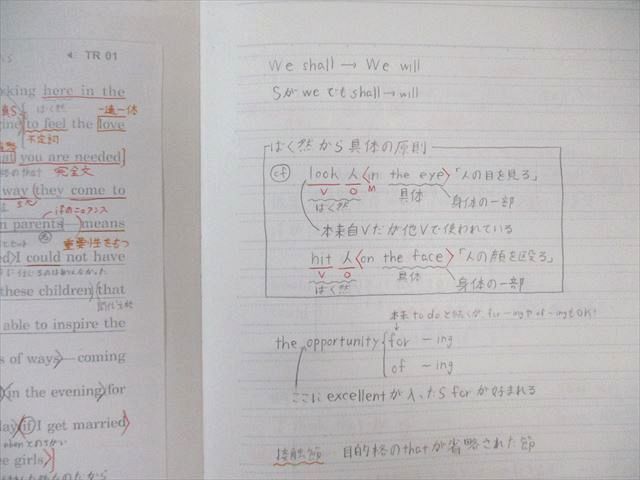 TR 01
king here in the
はく然
一遍一体
to feel the love
不定詞
at you are needed
の that 完全文
way (they come to
n parents means
重要性をもつ
I could not have
these children (that
able to inspire the
s of ways coming
in the evening for
if I get married
e girls
We shall → We will
Sがweでもshall→will
はく然から具体の原則
cf look 人 <in the eye> 「人の目を見る」
V O M 具体 身体の一部
はく然
本来自Vだが他Vで使われている
hit 人 <on the face> 「人の顔を殴る」
V O 具体 身体の一部
はく然
本来 to do と続くが for -ingや of -ingもOK!
the opportunity for ~ing
of ~ing
ここに excellent が入ったら for が好まれる
接触節 目的格のthatが省略された節